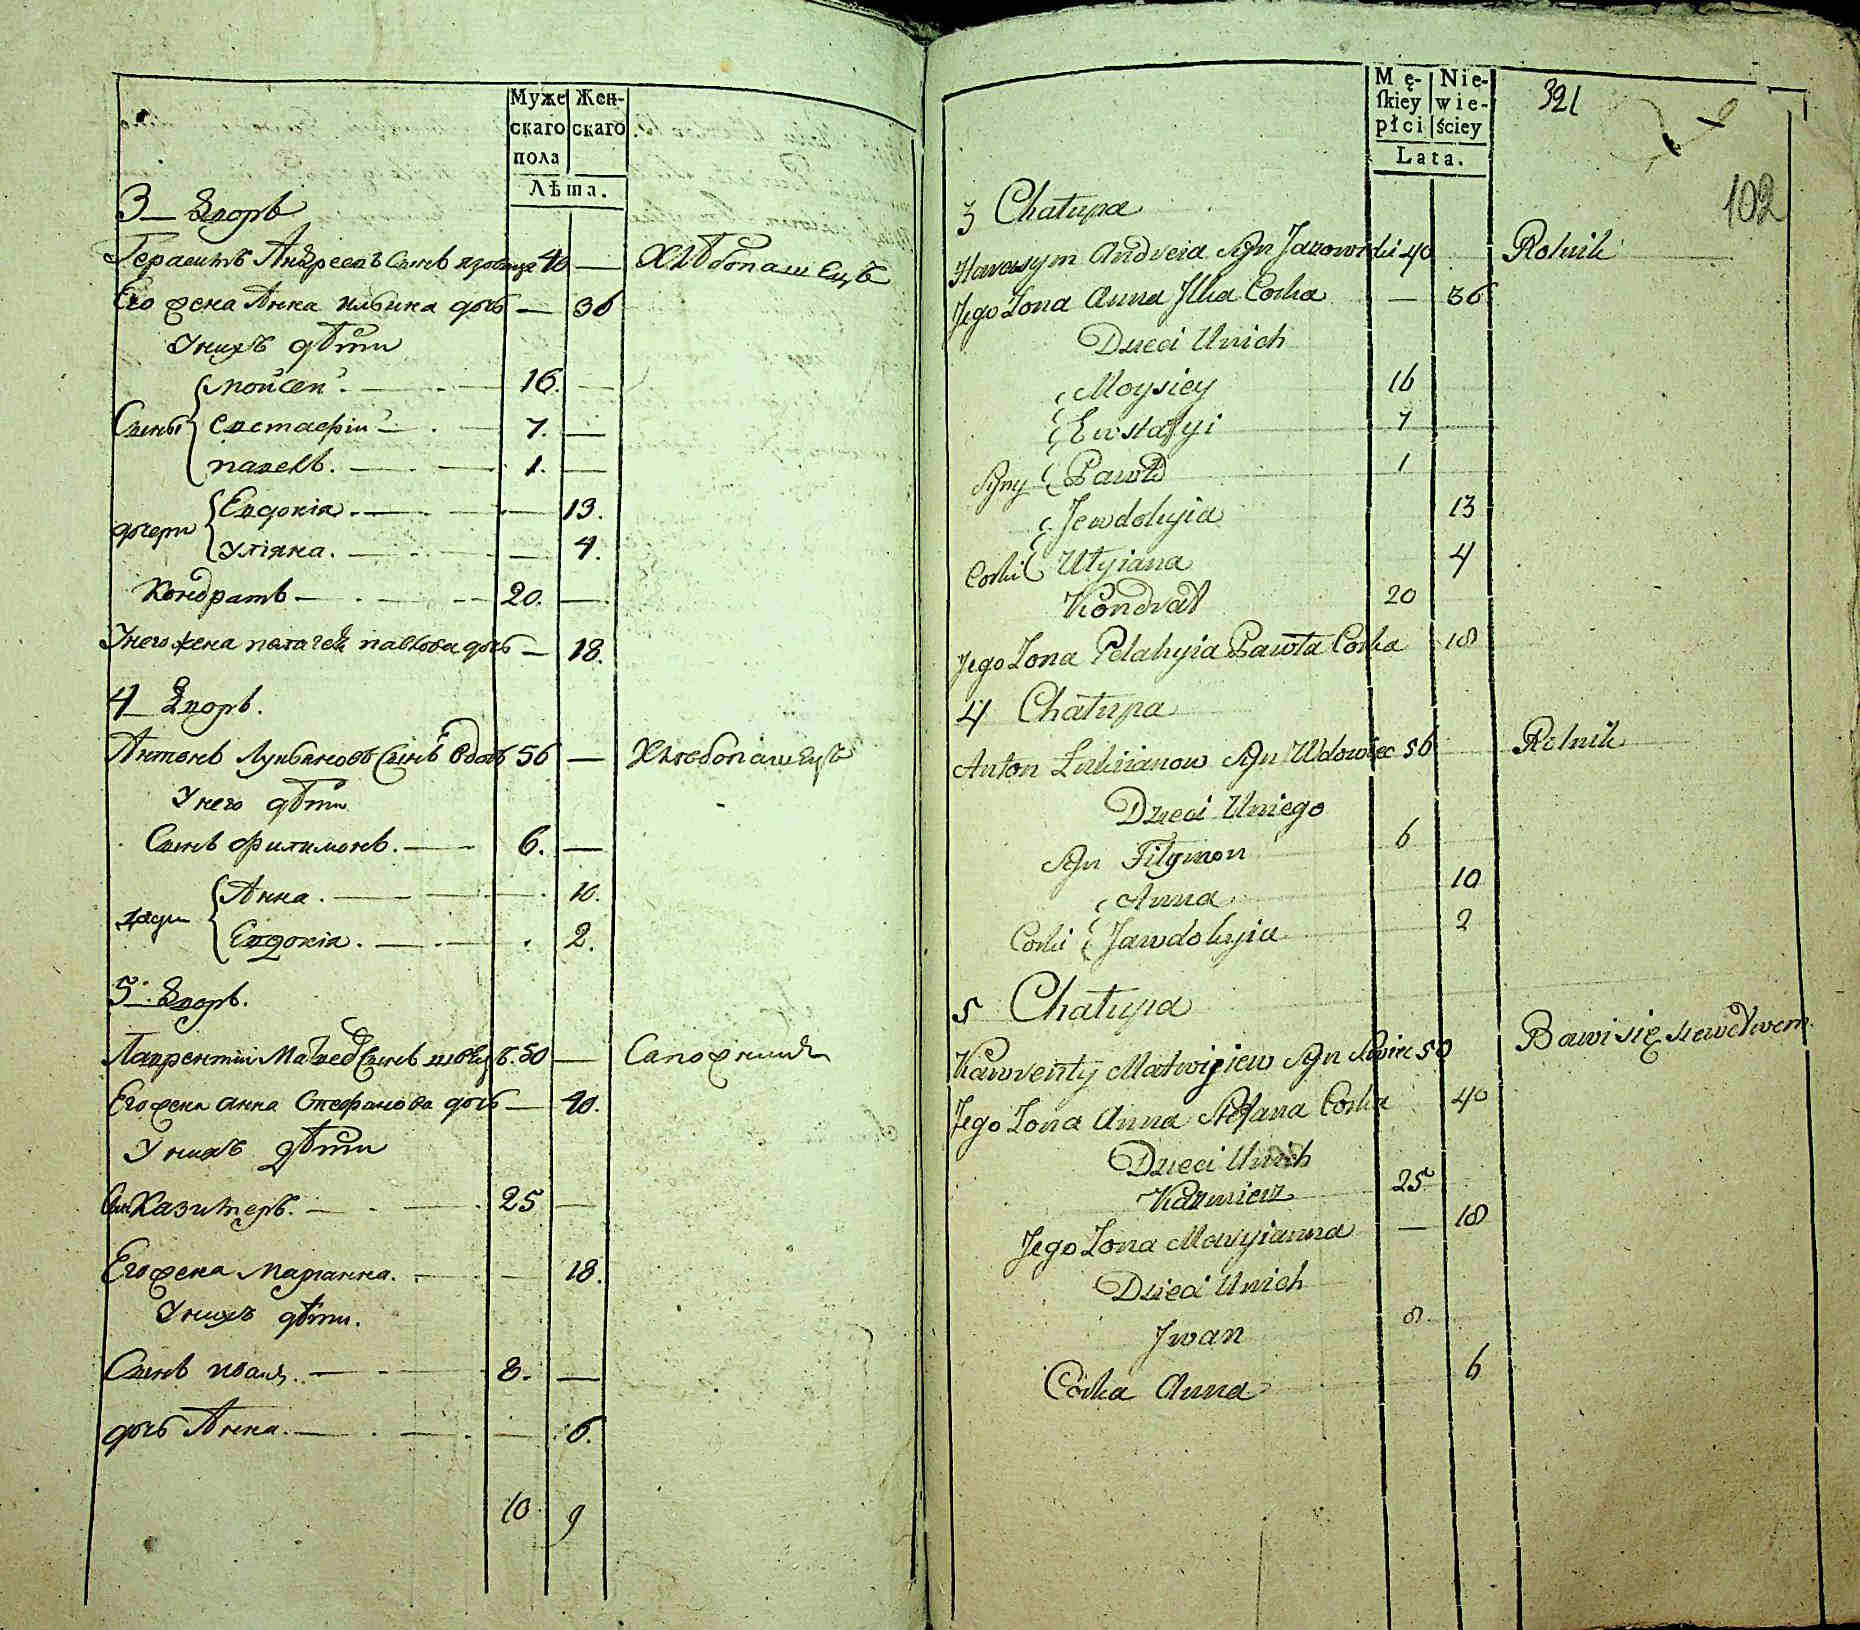 Муже Жен-
скаго скаго
пола
Лѣта.
3 Дворъ
Герасимъ Андреевъ Сынъ 40 — Хлѣбопашецъ
Его жена Анна Ильина дочь — 36
У нихъ дѣти
Мойсей — 16. —
Сыны Евстафій — 7. —
Павелъ. — 1. —
дочери Евдокіа. — 13.
Уліяна. — 4.
Кондратъ — 20. —
У него жена Пелагея Павлова дочь — 18.
4 Дворъ.
Антонъ Лукьяновъ Сынъ вдовъ 56 — Хлебопашецъ
У него дѣти
Сынъ Филимонъ. — 6. —
Анна. — 10.
Евдокіа. — 2.
5. Дворъ.
Лаврентій Матвеевъ Сынъ швецъ. 50 — Сапожникъ
Его жена Анна Стефанова дочь — 40.
У нихъ дѣти
Сын Казимеръ. — 25 —
Его жена Марианна. — 18.
У нихъ дѣти.
Сынъ Иванъ. — 8. —
дочь Анна. — 6.
10 9
Mę- Nie-
ſkiey wie-
płci ściey
Lata.
321
102
3 Chałupa
Harasym Andreia Syn Jarowski 40 Rolnik
Jego Zona Anna Jlka Corka — 36
Dzieci Unich
Moysiey 16
Ewstafyi 7
Syny Pawło 1
Jewdokyia 13
Corki Ulyiana 4
Kondrat 20
Jego Zona Pelahyia Pawła Corka 18
4 Chałupa
Anton Lukiianow Syn Wdowiec 56 Rolnik
Dzieci Uniego
Syn Filymon 6
Anna 10
Corki Jawdokyia 2
5 Chałupa
Ławrenty Matwijiew Syn Szwiec 50 Bawi się szewctwem.
Jego Zona Anna Stefana Corka 40
Dzieci Unich
Kazmierz 25
Jego Zona Maryianna — 18
Dzieci Unich
Jwan 8
Córka Anna 6